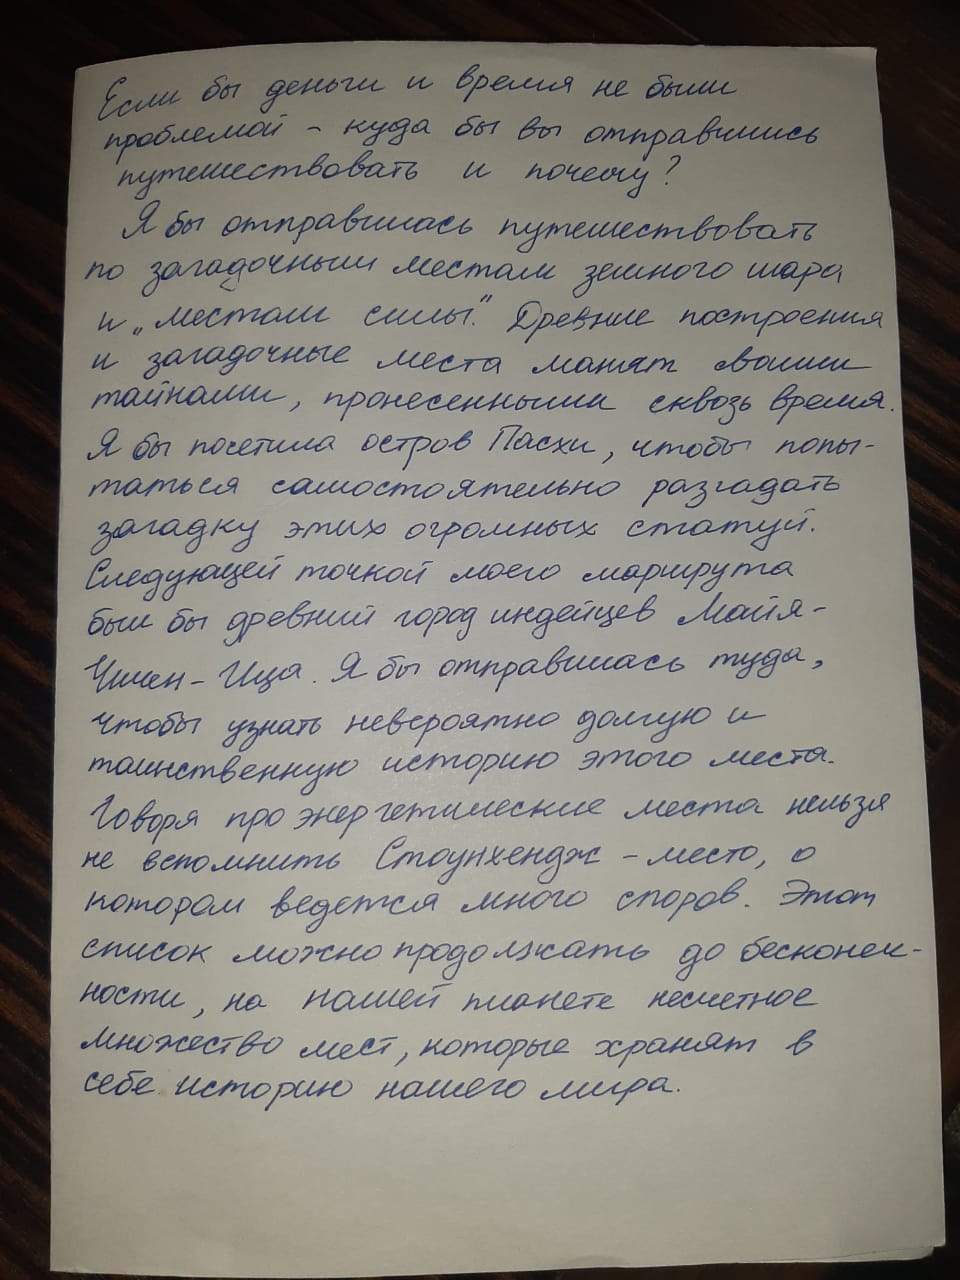 Если бы деньги и время не были
проблемой - куда бы вы отправились
путешествовать и почему?
Я бы отправилась путешествовать
по загадочным местам земного шара
и „местам силы". Древние построения
и загадочные места манят своими
тайнами, пронесенными сквозь время.
Я бы посетила остров Пасхи, чтобы попы-
таться самостоятельно разгадать
загадку этих огромных статуй.
Следующей точкой моего маршрута
был бы древний город индейцев Майя-
Чичен-Ица. Я бы отправилась туда,
чтобы узнать невероятно долгую и
таинственную историю этого места.
Говоря про энергетические места нельзя
не вспомнить Стоунхендж - место, о
котором ведется много споров. Этот
список можно продолжать до бесконеч-
ности, на нашей планете несчетное
множество мест, которые хранят в
себе историю нашего мира.